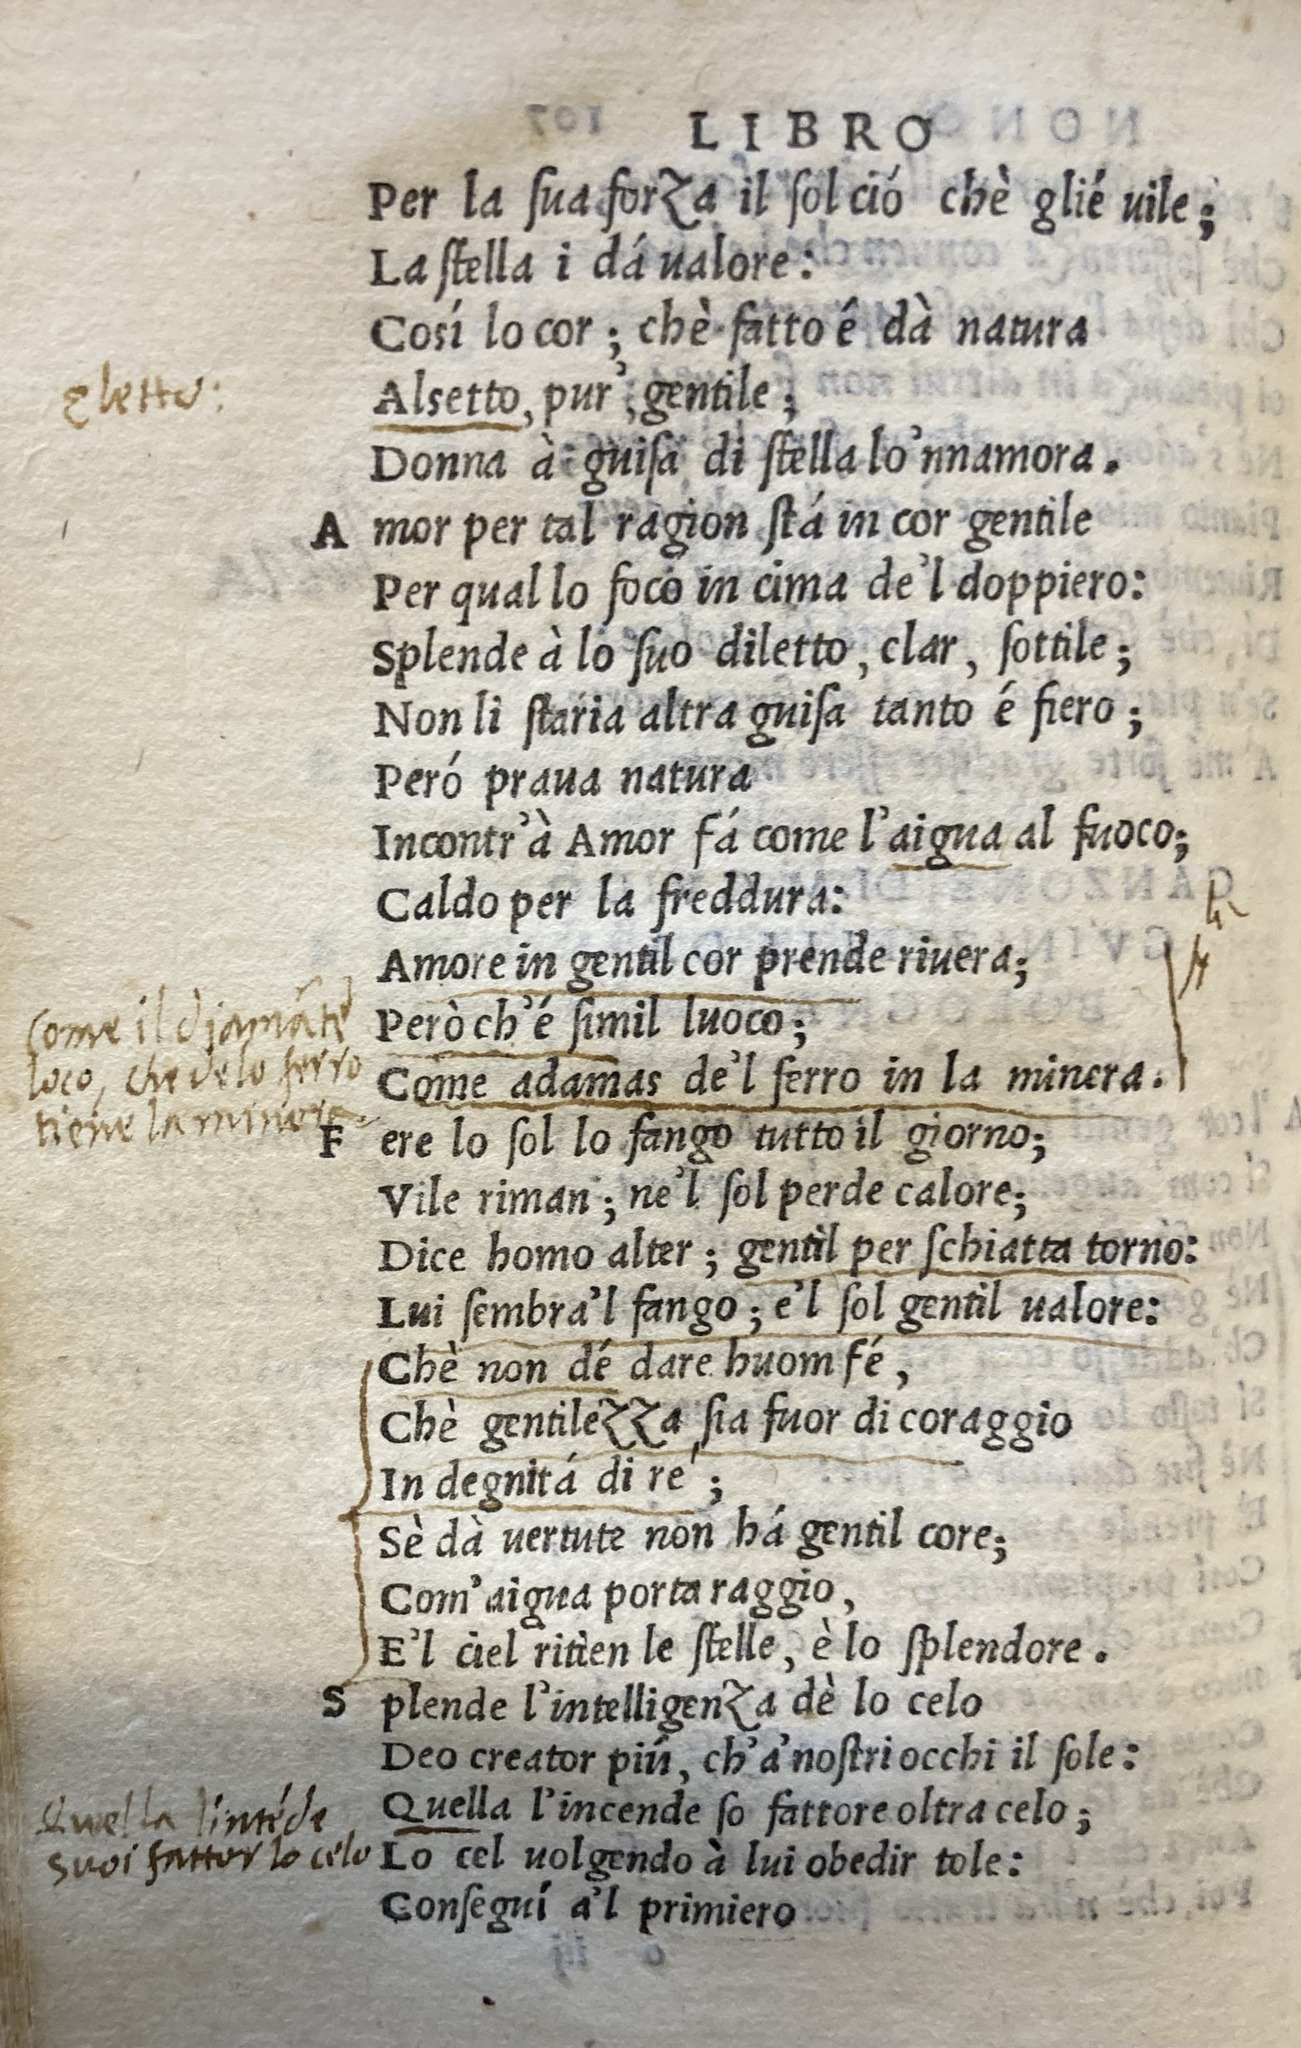 LIBRO
Per la sua forza il sol ció chè glié uile;
La stella i dá ualore:
Cosí lo cor; chè fatto é dà natura
eletto:
Alsetto, pur', gentile;
Donna à guisa di stella lo'nnamora.
Amor per tal ragion stá in cor gentile
Per qual lo foco in cima de'l doppiero:
Splende à lo suo diletto, clar, sottile;
Non li staria altra guisa tanto é fiero;
Peró praua natura
Incontr'à Amor fá come l'aigua al fuoco;
Caldo per la freddura:
Amore in gentil cor prende riuera;
Però ch'é simil luoco;
Come adamas de'l ferro in la minera.
Come il diamāte
loco, che de lo ferro
tiene la minera.
Fere lo sol lo fango tutto il giorno;
Vile riman; ne'l sol perde calore;
Dice homo alter; gentìl per schiatta torno:
Lui sembra'l fango; e'l sol gentil ualore:
Chè non dé dare huom fé,
Chè gentilezza sia fuor di coraggio
In degnitá di ré;
Sè dà uertute non há gentil core;
Com'aigua porta raggio,
E'l ciel ritien le stelle, è lo splendore.
Splende l'intelligenza dè lo celo
Deo creator piú, ch'a'nostri occhi il sole:
Quella l'intēde
suoi fattor lo celo
Quella l'incende so fattore oltra celo;
Lo cel uolgendo à lui obedir tole:
Conseguí a'l primiero